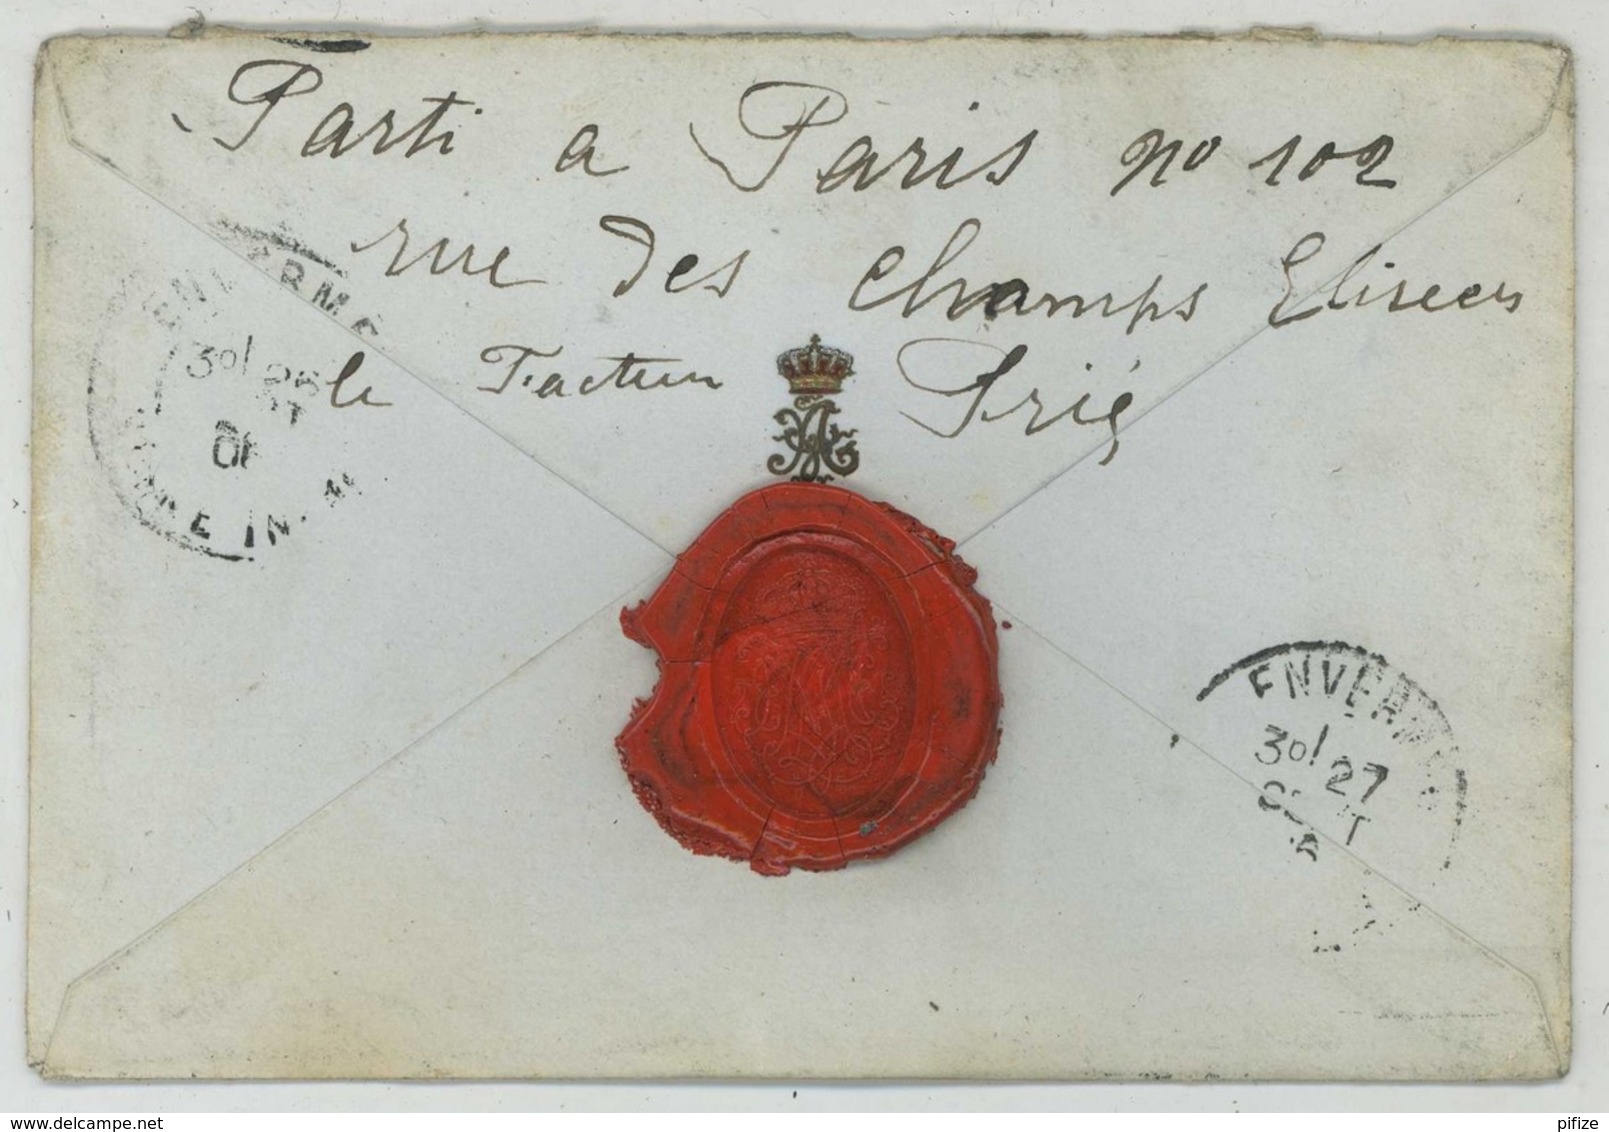 Parti a Paris no 102
rue des Champs Elisees
le Facteur Prié
ENVERME
30/ 26
06
SEINE INF
ENVERMEU
30/ 27
www.delcampe.net
pifize